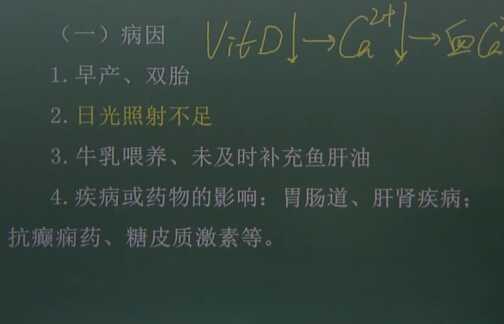 （一）病因 VitD↓→Ca²⁺↓→血Ca
1.早产、双胎
2.日光照射不足
3.牛乳喂养、未及时补充鱼肝油
4.疾病或药物的影响：胃肠道、肝肾疾病；
抗癫痫药、糖皮质激素等。